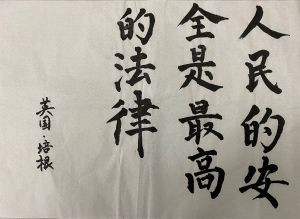 人民的安
全是最高
的法律
英国·培根